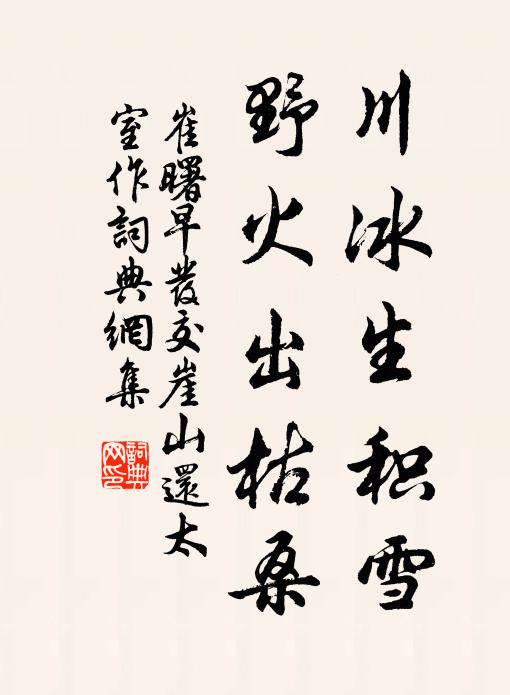 川冰生积雪
野火出枯桑
崔曙早發交崖山還太
室作詞典網集
詞典
网印